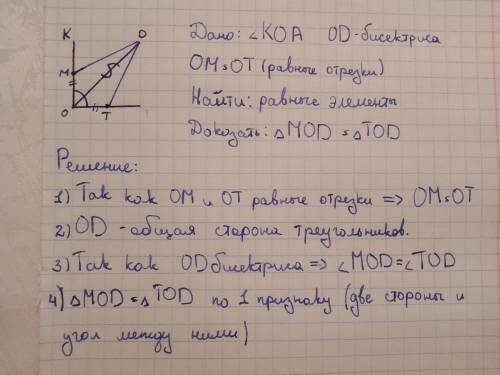 K D
M
O T
Дано: ∠KOA OD-бисектриса
OM=OT (равные отрезки)
Найти: равные элементы
Доказать: △MOD = △TOD
Решение:
1) Так как OM и OT равные отрезки => OM=OT
2) OD - общая сторона треугольников.
3) Так как OD бисектриса => ∠MOD=∠TOD
4) △MOD = △TOD по 1 признаку (две стороны и
угол между ними)